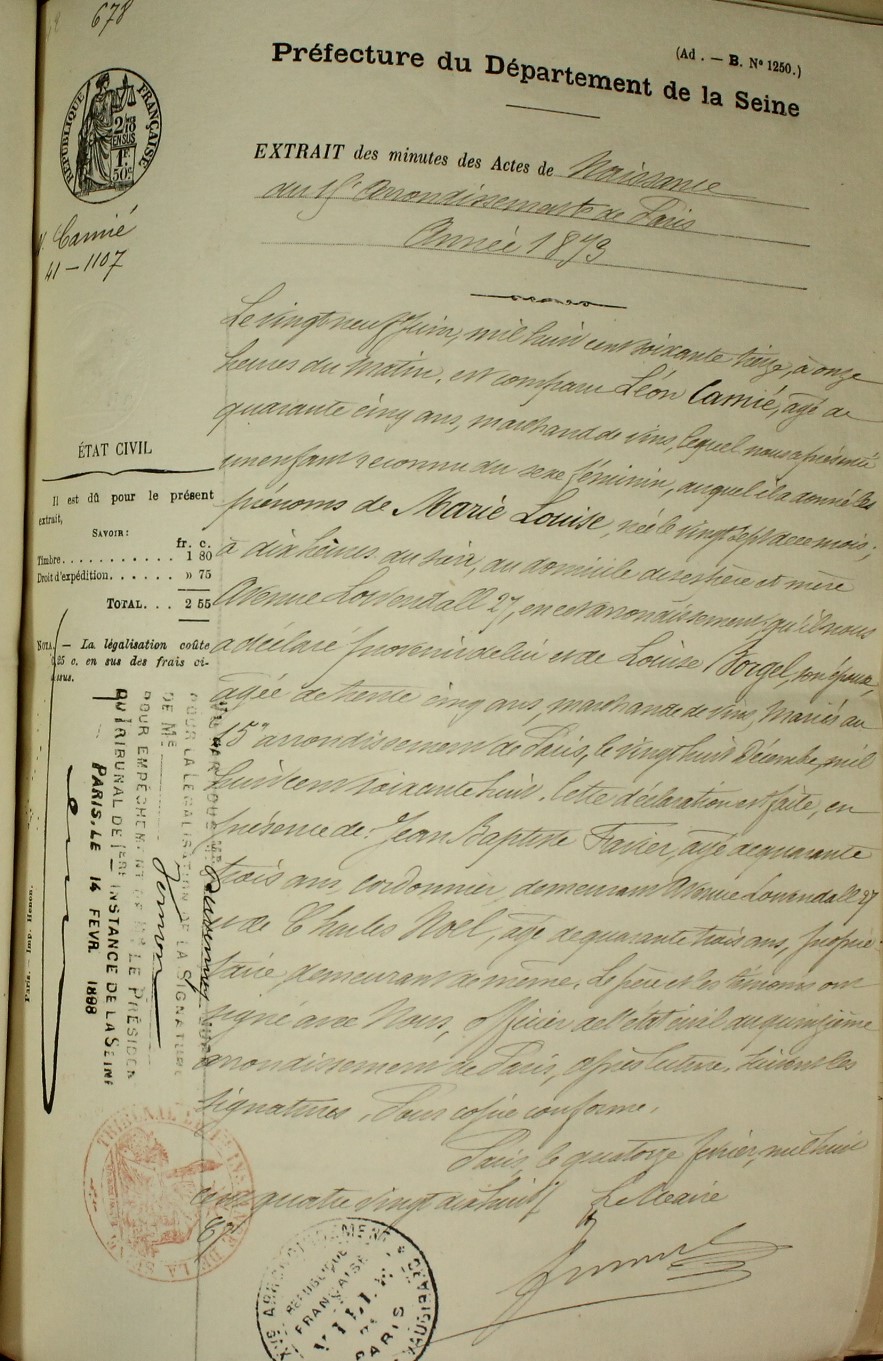 678
(Ad. — B. N° 1250.)
Préfecture du Département de la Seine
RÉPUBLIQUE FRANÇAISE
2/10
EN SUS
1F.
50c.
EXTRAIT des minutes des Actes de Naissance
du 15e arrondissement de Paris
Année 1873
Camié
41 - 1107
Le vingt neuf Juin, mil huit cent soixante treize, à onze
heures du matin, est comparu Léon Camié, agé de
quarante cinq ans, marchand de vins, lequel nous a présenté
un enfant reconnu du sexe féminin, auquel il a donné les
prénoms de Marie Louise, née le vingt sept de ce mois,
à dix heures du soir, au domicile de ses père et mère
Avenue Lowendall 27, en cet arrondissement, qu'il nous
a déclaré provenir de lui et de Louise Vorgel, son épouse,
agée de trente cinq ans, marchande de vins, Mariés au
15e arrondissement de Paris, le vingt huit Décembre, mil
huit cent soixante huit. Cette déclaration est faite, en
présence de: Jean Baptiste Favier, agé de quarante
trois ans, cordonnier, demeurant Avenue Lowendall 27
et de Charles Noel, agé de quarante trois ans, proprié-
taire, demeurant de même. Le père et les témoins ont
signé avec Nous, officier de l'état civil du quinzième
arrondissement de Paris, après lecture. Suivent les
signatures. Pour copie conforme.
Paris, le quatorze février, mil huit
cent quatre vingt dix huit
Le Maire
ÉTAT CIVIL
Il est dû pour le présent
extrait,
SAVOIR:
fr. c.
Timbre........... 1 80
Droit d'expédition...... » 75
TOTAL... 2 55
NOTA. — La légalisation coûte
25 c. en sus des frais ci-
dessus.
POUR LA LÉGALISATION DE LA SIGNATURE
DE ME
POUR EMPÊCHEMENT DE MR LE PRÉSIDENT
DU TRIBUNAL DE 1ÈRE INSTANCE DE LA SEINE
PARIS, LE 14 FEVR. 1898
Paris. — Imp.
TRIBUNAL DE 1RE INSTANCE DE LA SEINE
RÉPUBLIQUE
FRANÇAISE
VILLE
DE
PARIS